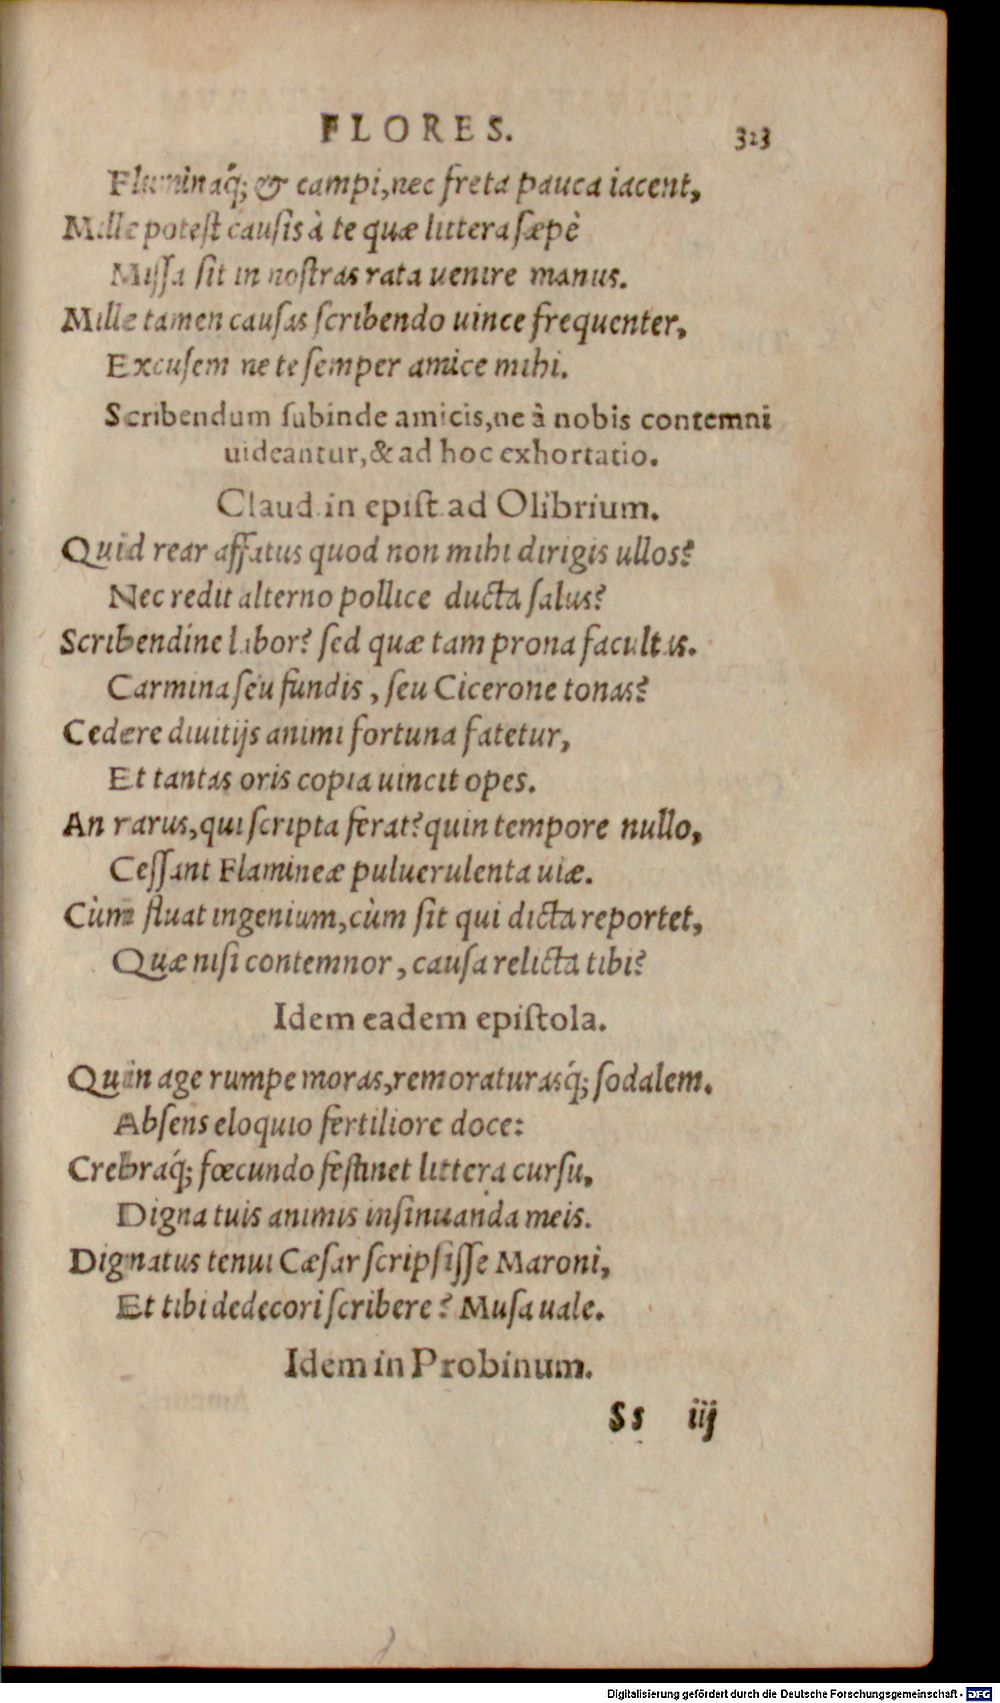 FLORES. 323
Fluminaq́; & campi, nec freta pauca iacent,
Mille potest causis à te quæ littera sæpè
Missa sit in nostras rata uenire manus.
Mille tamen causas scribendo uince frequenter,
Excusem ne te semper amice mihi.
Scribendum subinde amicis, ne à nobis contemni
uideantur, & ad hoc exhortatio.
Claud. in epist. ad Olibrium.
Quid rear affatus quod non mihi dirigis ullos?
Nec redit alterno pollice ducta salus?
Scribendine labor? sed quæ tam prona facultas.
Carmina seu fundis, seu Cicerone tonas?
Cedere diuitijs animi fortuna fatetur,
Et tantas oris copia uincit opes.
An rarus, qui scripta ferat? quin tempore nullo,
Cessant Flamineæ puluerulenta uiæ.
Cùm fluat ingenium, cùm sit qui dicta reportet,
Quæ nisi contemnor, causa relicta tibi?
Idem eadem epistola.
Quin age rumpe moras, remoraturasq́; sodalem.
Absens eloquio fertiliore doce:
Crebraq́; fœcundo festinet littera cursu,
Digna tuis animis insinuanda meis.
Dignatus tenui Cæsar scripsisse Maroni,
Et tibi dedecori scribere? Musa uale.
Idem in Probinum.
Ss iij
Digitalisierung gefördert durch die Deutsche Forschungsgemeinschaft - DFG